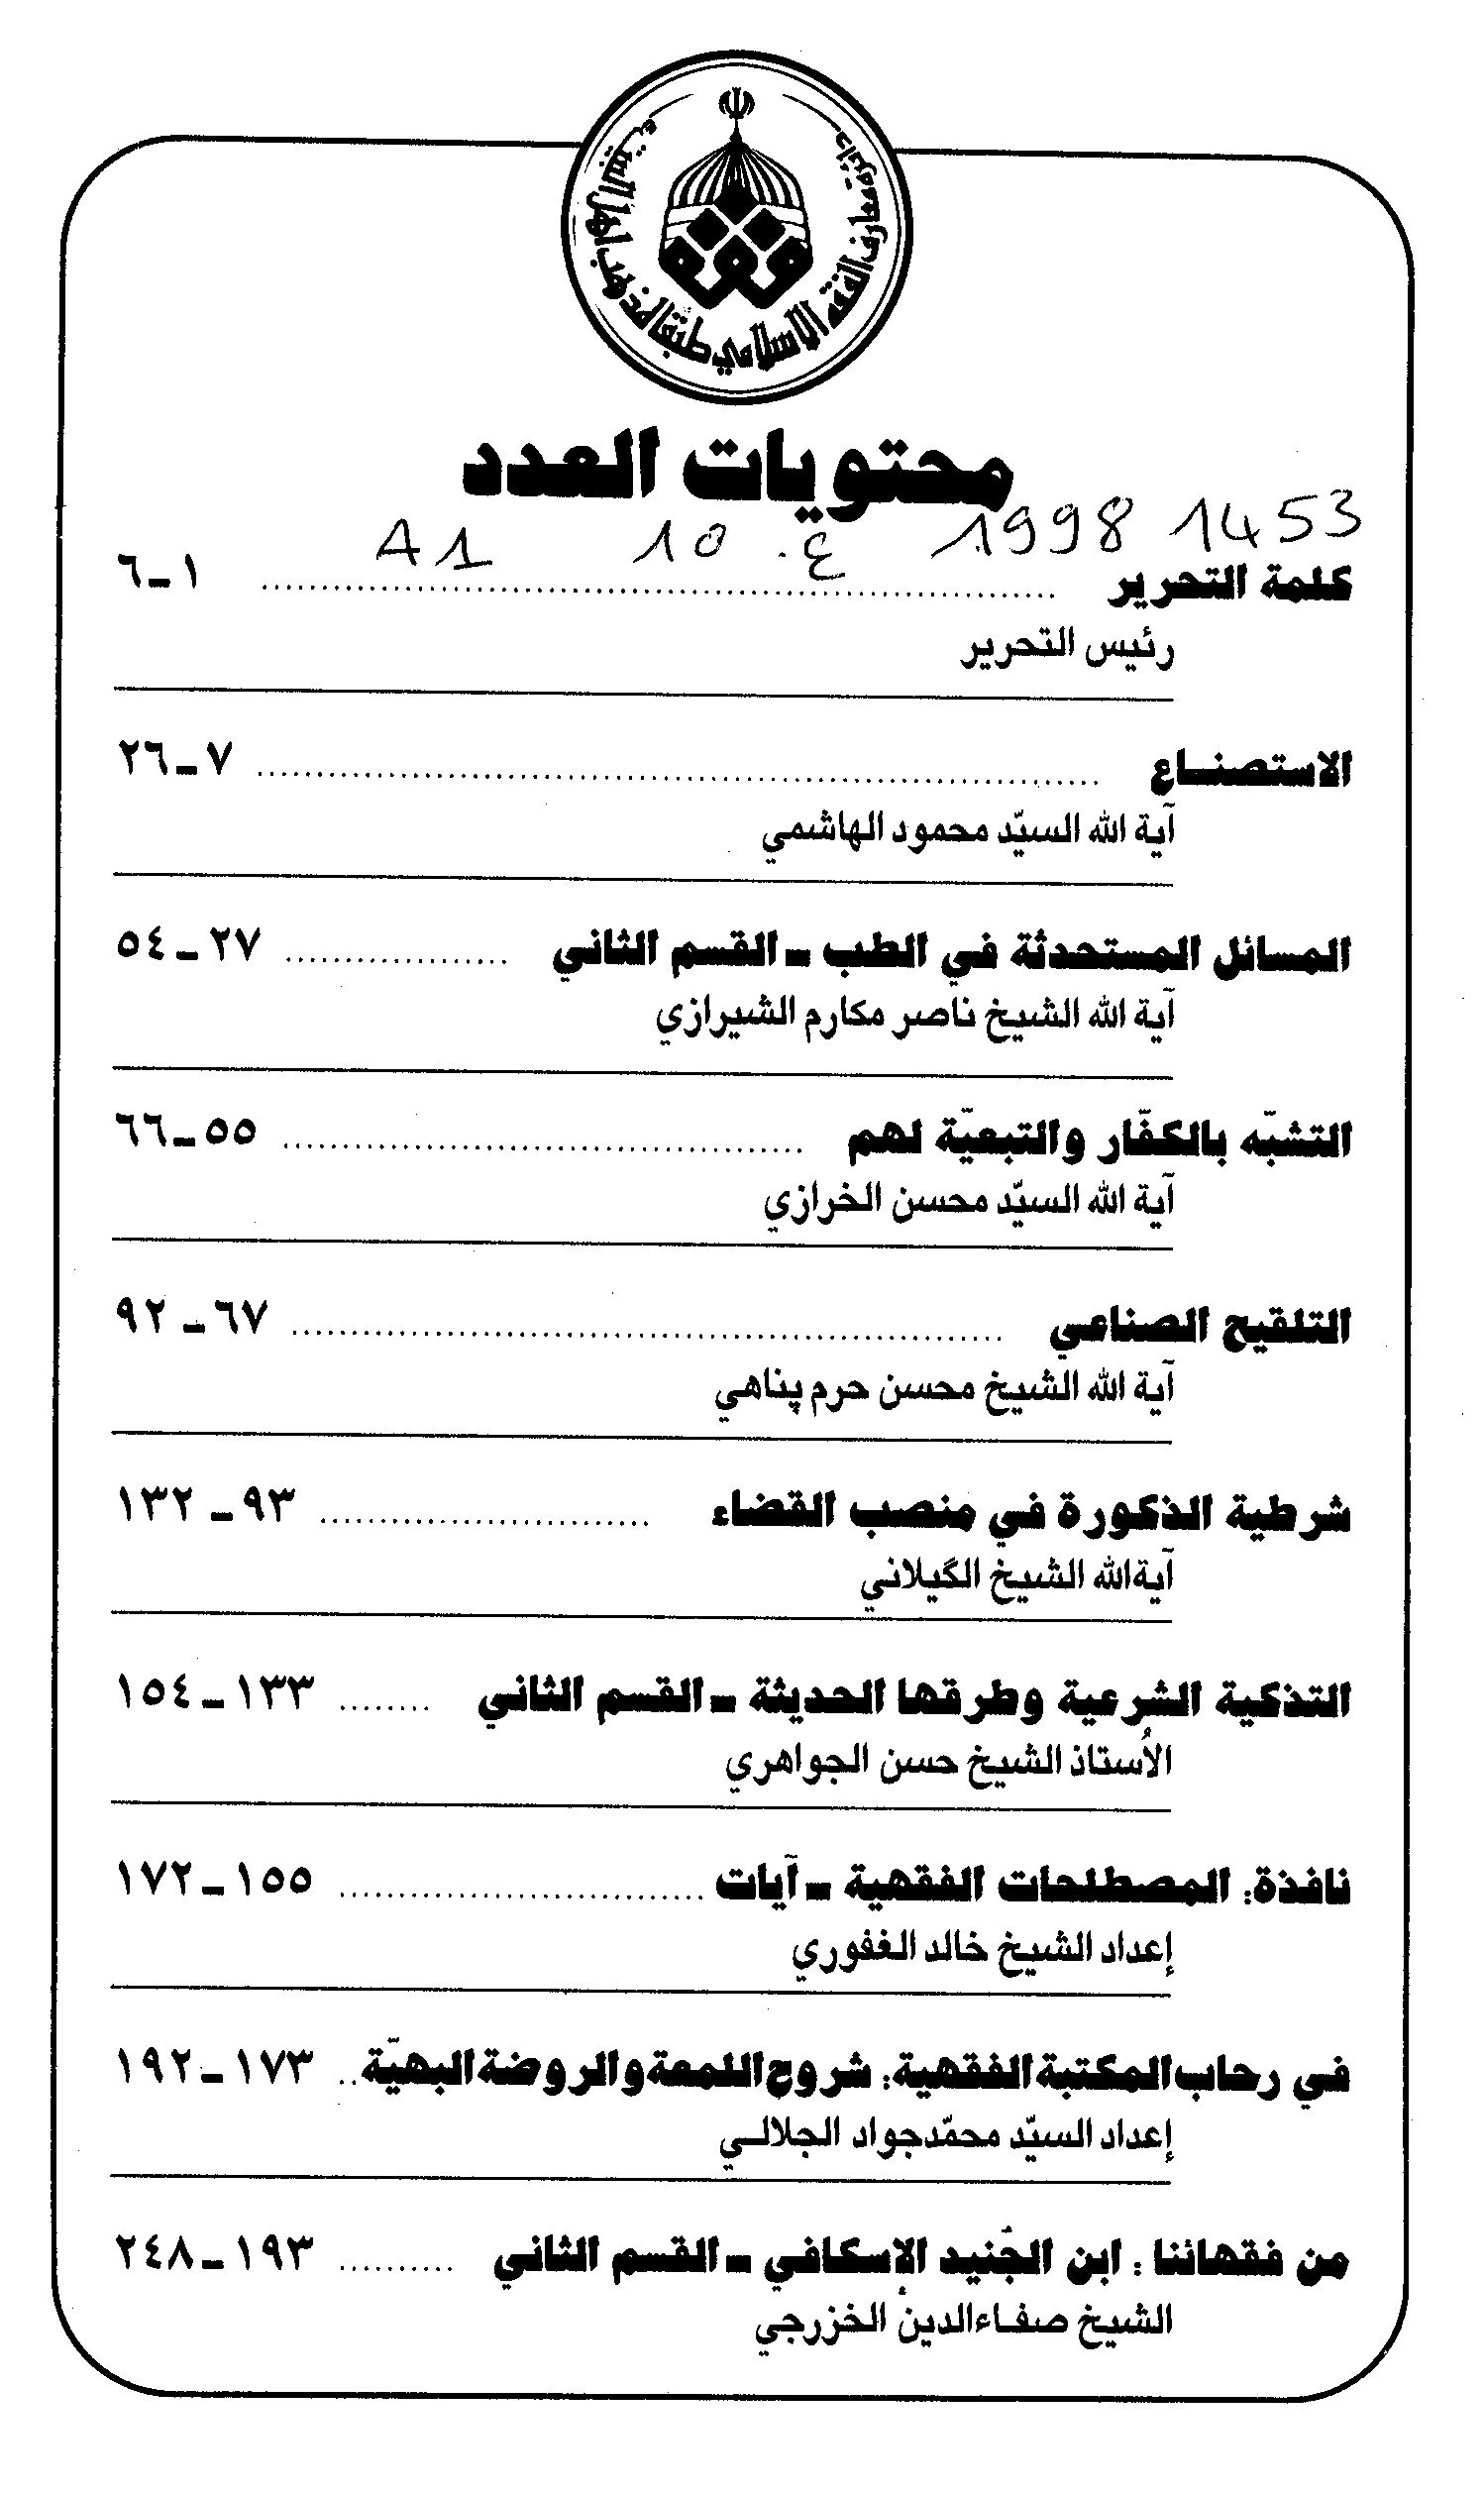 دائرة معارف الفقه الاسلامي طبقا لمذهب اهل البيت
محتويات العدد
A1 10 ع. 1998 1453
كلمة التحرير ........ ١ـ٦
رئيس التحرير
الاستصنـاع ........ ٧ـ٢٦
آية الله السيّد محمود الهاشمي
المسائل المستحدثة في الطب ـ القسم الثاني ........ ٢٧ـ٥٤
آية الله الشيخ ناصر مكارم الشيرازي
التشبّه بالكفّار والتبعيّة لهم ........ ٥٥ـ٦٦
آية الله السيّد محسن الخرازي
التلقيح الصناعي ........ ٦٧ـ٩٢
آية الله الشيخ محسن حرم پناهي
شرطية الذكورة في منصب القضاء ........ ٩٣ـ١٣٢
آية‌الله الشيخ الگيلاني
التذكية الشرعية وطرقها الحديثة ـ القسم الثاني ........ ١٣٣ـ١٥٤
الأستاذ الشيخ حسن الجواهري
نافذة: المصطلحات الفقهية ـ آيات ........ ١٥٥ـ١٧٢
إعداد الشيخ خالد الغفوري
في رحاب المكتبة الفقهية: شروح اللمعة والروضة البهيّة .. ١٧٣ـ١٩٢
إعداد السيّد محمّدجواد الجلالـي
من فقهائنا : ابن الجُنيد الإسكافي ـ القسم الثاني ........ ١٩٣ـ٢٤٨
الشيخ صفـاءالدين الخزرجي